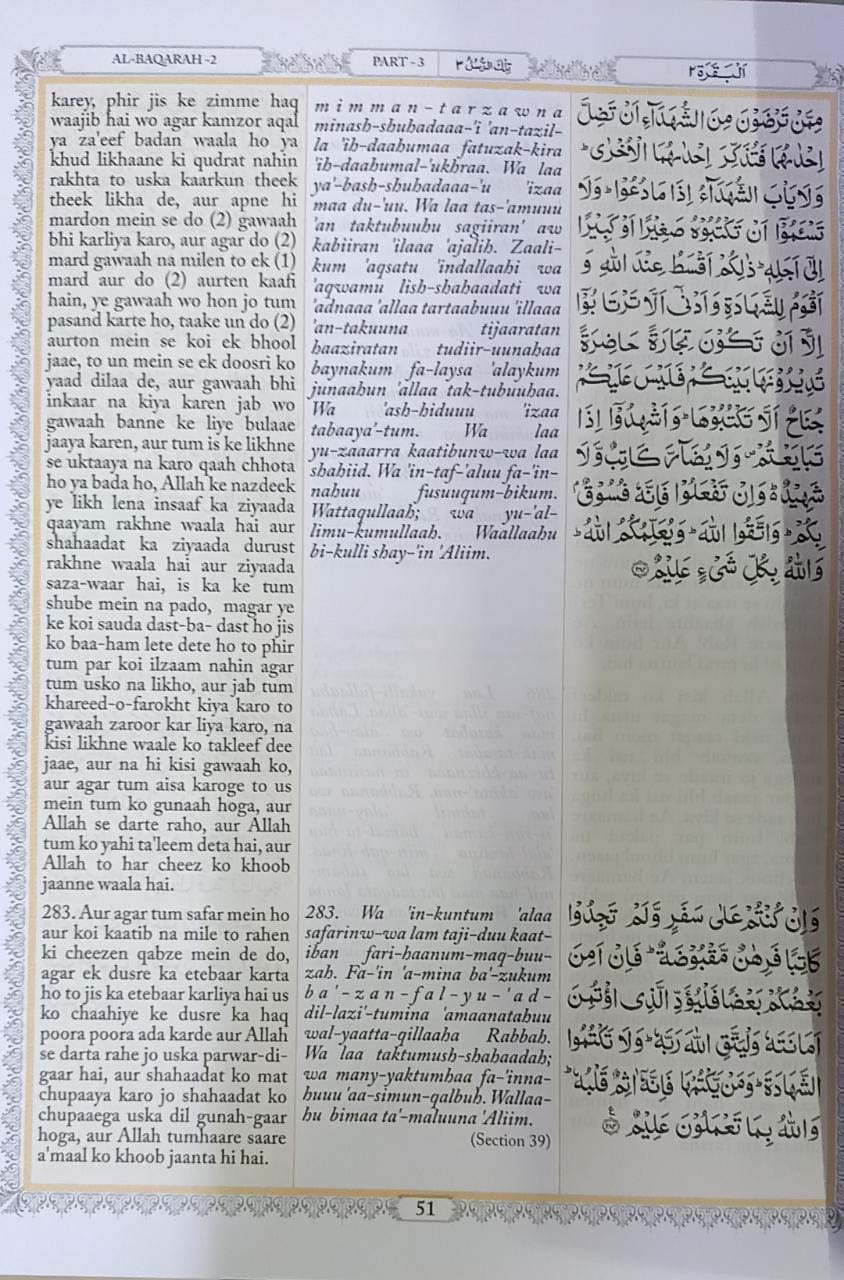 AL-BAQARAH -2
PART - 3 تِلْكَ الرُّسُلُ ٣
اَلْبَقَرَة ٢
karey, phir jis ke zimme haq
waajib hai wo agar kamzor aqal
ya za'eef badan waala ho ya
khud likhaane ki qudrat nahin
rakhta to uska kaarkun theek
theek likha de, aur apne hi
mardon mein se do (2) gawaah
bhi karliya karo, aur agar do (2)
mard gawaah na milen to ek (1)
mard aur do (2) aurten kaafi
hain, ye gawaah wo hon jo tum
pasand karte ho, taake un do (2)
aurton mein se koi ek bhool
jaae, to un mein se ek doosri ko
yaad dilaa de, aur gawaah bhi
inkaar na kiya karen jab wo
gawaah banne ke liye bulaae
jaaya karen, aur tum is ke likhne
se uktaaya na karo qaah chhota
ho ya bada ho, Allah ke nazdeek
ye likh lena insaaf ka ziyaada
qaayam rakhne waala hai aur
shahaadat ka ziyaada durust
rakhne waala hai aur ziyaada
saza-waar hai, is ka ke tum
shube mein na pado, magar ye
ke koi sauda dast-ba- dast ho jis
ko baa-ham lete dete ho to phir
tum par koi ilzaam nahin agar
tum usko na likho, aur jab tum
khareed-o-farokht kiya karo to
gawaah zaroor kar liya karo, na
kisi likhne waale ko takleef dee
jaae, aur na hi kisi gawaah ko,
aur agar tum aisa karoge to us
mein tum ko gunaah hoga, aur
Allah se darte raho, aur Allah
tum ko yahi ta'leem deta hai, aur
Allah to har cheez ko khoob
jaanne waala hai.
283. Aur agar tum safar mein ho
aur koi kaatib na mile to rahen
ki cheezen qabze mein de do,
agar ek dusre ka etebaar karta
ho to jis ka etebaar karliya hai us
ko chaahiye ke dusre ka haq
poora poora ada karde aur Allah
se darta rahe jo uska parwar-di-
gaar hai, aur shahaadat ko mat
chupaaya karo jo shahaadat ko
chupaaega uska dil gunah-gaar
hoga, aur Allah tumhaare saare
a'maal ko khoob jaanta hi hai.
mimman-tarzawna
minash-shuhadaaa-'i 'an-tazil-
la 'ih-daahumaa fatuzak-kira
'ih-daahumal-'ukhraa. Wa laa
ya'-bash-shuhadaaa-'u 'izaa
maa du-'uu. Wa laa tas-'amuuu
'an taktubuuhu sagiiran' aw
kabiiran 'ilaaa 'ajalih. Zaali-
kum 'aqsatu 'indallaahi wa
'aqwamu lish-shahaadati wa
'adnaaa 'allaa tartaabuuu 'illaaa
'an-takuuna tijaaratan
haaziratan tudiir-uunahaa
baynakum fa-laysa 'alaykum
junaahun 'allaa tak-tubuuhaa.
Wa 'ash-hiduuu 'izaa
tabaaya'-tum. Wa laa
yu-zaaarra kaatibunw-wa laa
shahiid. Wa 'in-taf-'aluu fa-'in-
nahuu fusuuqum-bikum.
Wattaqullaah; wa yu-'al-
limu-kumullaah. Waallaahu
bi-kulli shay-'in 'Aliim.
283. Wa 'in-kuntum 'alaa
safarinw-wa lam taji-duu kaat-
iban fari-haanum-maq-buu-
zah. Fa-'in 'a-mina ba'-zukum
ba'-zan-fal-yu-'ad-
dil-lazi'-tumina 'amaanatahuu
wal-yaatta-qillaaha Rabbah.
Wa laa taktumush-shahaadah;
wa many-yaktumhaa fa-'inna-
huuu 'aa-simun-qalbuh. Wallaa-
hu bimaa ta'-maluuna 'Aliim.
(Section 39)
مِمَّنْ تَرْضَوْنَ مِنَ الشُّهَدَآءِ اَنْ تَضِلَّ
اِحْدٰىهُمَا فَتُذَكِّرَ اِحْدٰىهُمَا الْاُخْرٰى ؕ
وَلَا يَاْبَ الشُّهَدَآءُ اِذَا مَا دُعُوْا ؕ وَلَا
تَسْـَٔمُوْۤا اَنْ تَكْتُبُوْهُ صَغِيْرًا اَوْ كَبِيْرًا
اِلٰٓى اَجَلِهٖ ؕ ذٰلِكُمْ اَقْسَطُ عِنْدَ اللّٰهِ وَ
اَقْوَمُ لِلشَّهَادَةِ وَاَدْنٰۤى اَلَّا تَرْتَابُوْۤا
اِلَّاۤ اَنْ تَكُوْنَ تِجَارَةً حَاضِرَةً
تُدِيْرُوْنَهَا بَيْنَكُمْ فَلَيْسَ عَلَيْكُمْ
جُنَاحٌ اَلَّا تَكْتُبُوْهَا ؕ وَاَشْهِدُوْۤا اِذَا
تَبَايَعْتُمْ ۪ وَلَا يُضَآرَّ كَاتِبٌ وَّلَا
شَهِيْدٌ ؕ۬ وَاِنْ تَفْعَلُوْا فَاِنَّهٗ فُسُوْقٌۢ
بِكُمْ ؕ وَاتَّقُوا اللّٰهَ ؕ وَيُعَلِّمُكُمُ اللّٰهُ ؕ
وَاللّٰهُ بِكُلِّ شَىْءٍ عَلِيْمٌ ﴿٢٨٢﴾
وَاِنْ كُنْتُمْ عَلٰى سَفَرٍ وَّلَمْ تَجِدُوْا
كَاتِبًا فَرِهٰنٌ مَّقْبُوْضَةٌ ؕ فَاِنْ اَمِنَ
بَعْضُكُمْ بَعْضًا فَلْيُؤَدِّ الَّذِى اؤْتُمِنَ
اَمَانَتَهٗ وَلْيَتَّقِ اللّٰهَ رَبَّهٗ ؕ وَلَا تَكْتُمُوا
الشَّهَادَةَ ؕ وَمَنْ يَّكْتُمْهَا فَاِنَّهٗۤ اٰثِمٌ قَلْبُهٗ ؕ
وَاللّٰهُ بِمَا تَعْمَلُوْنَ عَلِيْمٌ ﴿٢٨٣﴾ ع
51